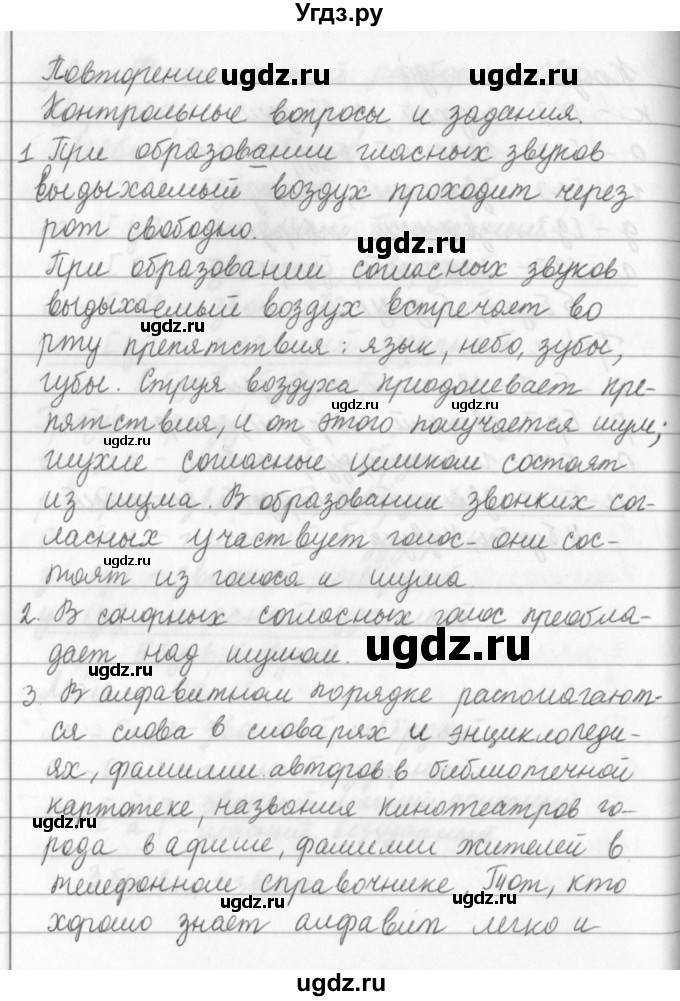 Угдз.ру
Повторение ugdz.ru
Контрольные вопросы и задания.
1 При образовании гласных звуков
выдыхаемый воздух проходит через
рот свободно. ugdz.ru
При образовании согласных звуков
выдыхаемый воздух встречает во
ugdz.ru
рту препятствия: язык, небо, зубы,
губы. Струя воздуха приодолевает пре-
ugdz.ru ugdz.ru
пятствия, и от этого получается шум;
ugdz.ru
глухие согласные целиком состоят
из шума. В образовании звонких сог-
ласных участвует голос - они сос-
тоят из голоса и шума
2. В сонорных согласных голос преобла-
дает над шумом. ugdz.ru
ugdz.ru
3. В алфавитном порядке располагают-
ся слова в словарях и энциклопеди-
ях, фамилии авторов в библиотечной
картотеке, названия кинотеатров го-
ugdz.ru
рода в афише, фамилии жителей в
телефонном справочнике. Тот, кто
ugdz.ru ugdz.ru
хорошо знает алфавит легко и
ugdz.ru